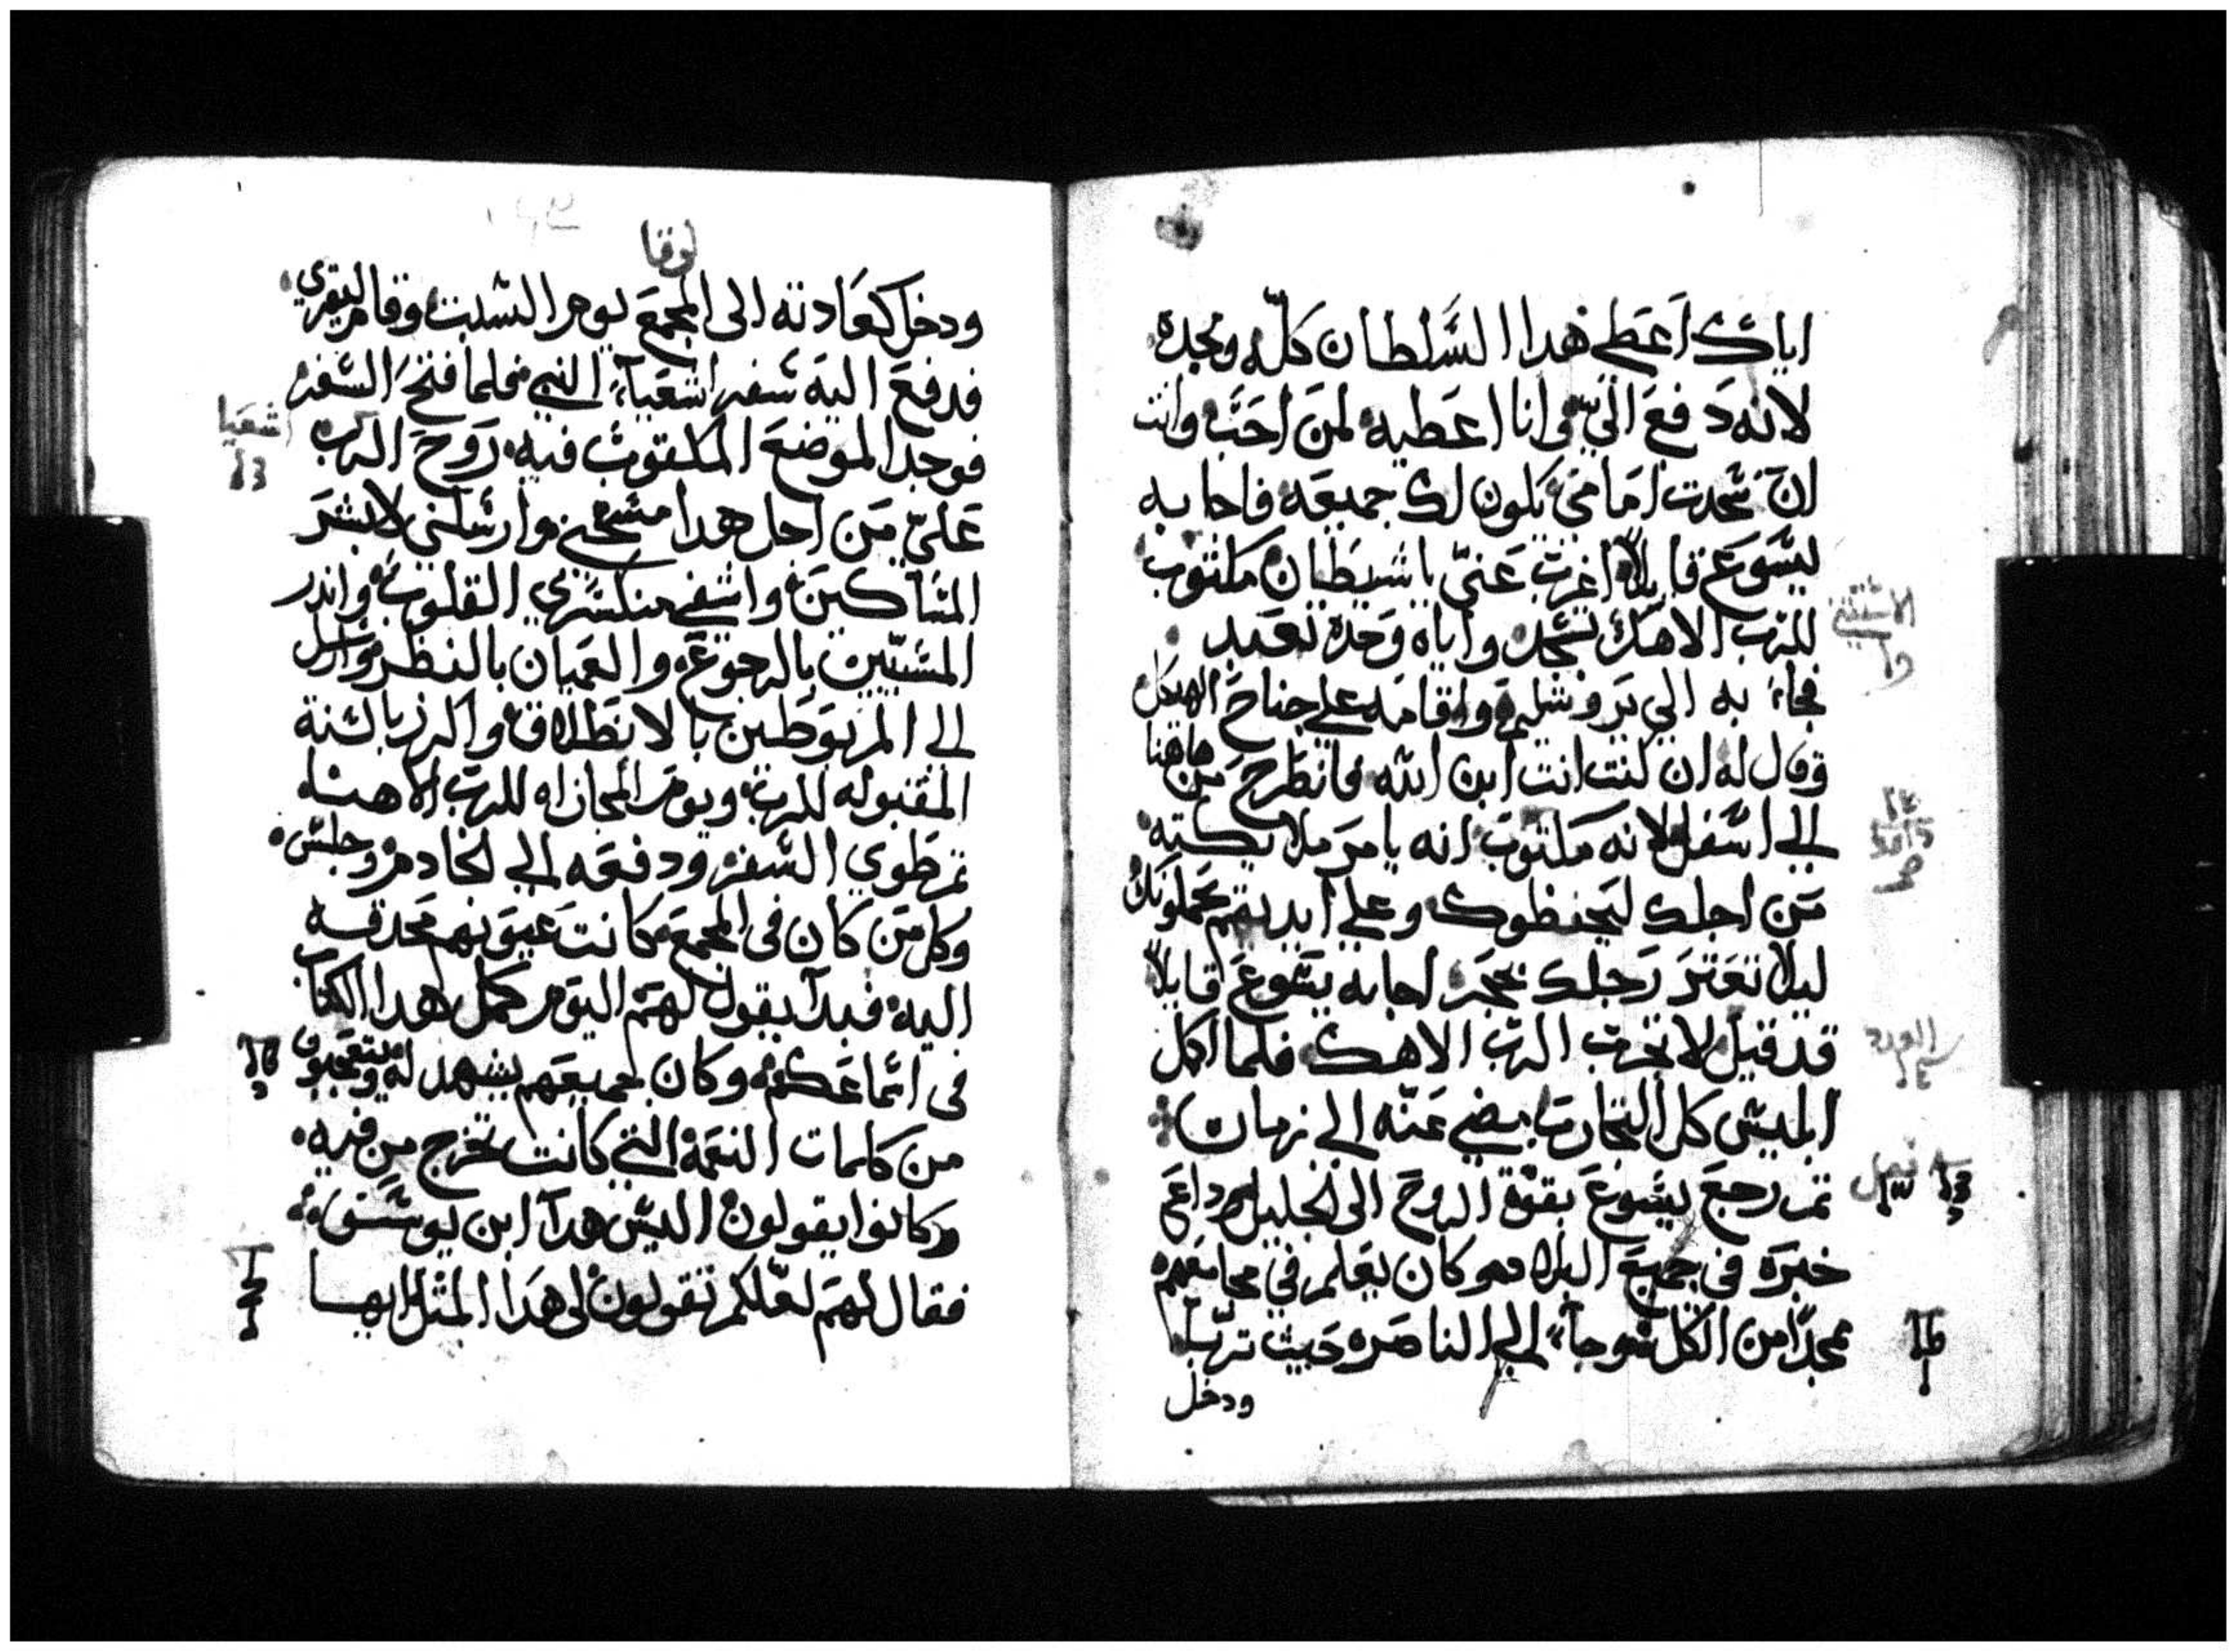 اياك اعطي هدا السلطان كله ومجده
لانه دفع الي وانا اعطيه لمن احب وانت
ان سجدت امامي يكون لك جميعه فاجابه
يسوع قايلا اغرب عني ياشيطان مكتوب
للرب الاهك تسجد واياه وحده تعبد
فجاء به الي يروشليم واقامه علي جناح الهيكل
وقال له ان كنت انت ابن الله فانطرح من هاهنا
الي اسفل لانه مكتوب انه يامر ملايكته
من اجلك ليحفظوك وعلي ايديهم يحملونك
ليلا تعتر رجلك بحجر اجابه يسوع قايلا
قد قيل لا تجرب الرب الاهك فلما اكمل
ابليس كل التجارب مضي عنه الي زمان
تم رجع يسوع بقوة الروح الي الجليل وداع
خبره في جميع البلاد وهو كان يعلم في مجامعهم
ممجدا من الكل وجاء الي الناصره حيث تربا
ودخل
لوقا
ودخل كعادته الى المجمع يوم السبت وقام ليقري
فدفع اليه سفر اشعياء النبي فلما فتح السفر
فوجد الموضع المكتوب فيه روح الرب
علي من اجل هدا مسحني وارسلني لابشر
المساكين واشفي منكسري القلوب واندر
المسبيين بالرجوع والعميان بالنظر وارسل
الي المربوطين بالانطلاق واكرز بالسنة
المقبوله للرب ويوم المجازاه للرب الاهنا
تم طوي السفر ودفعه الي الخادم وجلس
وكل من كان في المجمع كانت عيونهم محدقه
اليه فبدا يقول لهم اليوم كمل هدا الكتاب
في اسماعكم وكان جميعهم يشهد له ويتعجبون
من كلمات النعمة التي كانت تخرج من فيه
وكانوا يقولون اليس هدا ابن يوسف
فقال لهم لعلكم تقولون لي هدا المتل ايها
اشعيا